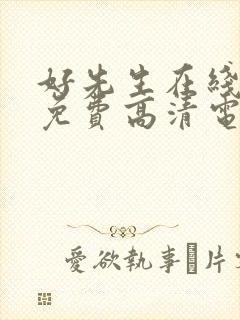 好先生在綫
免費高清電
愛欲執事 片